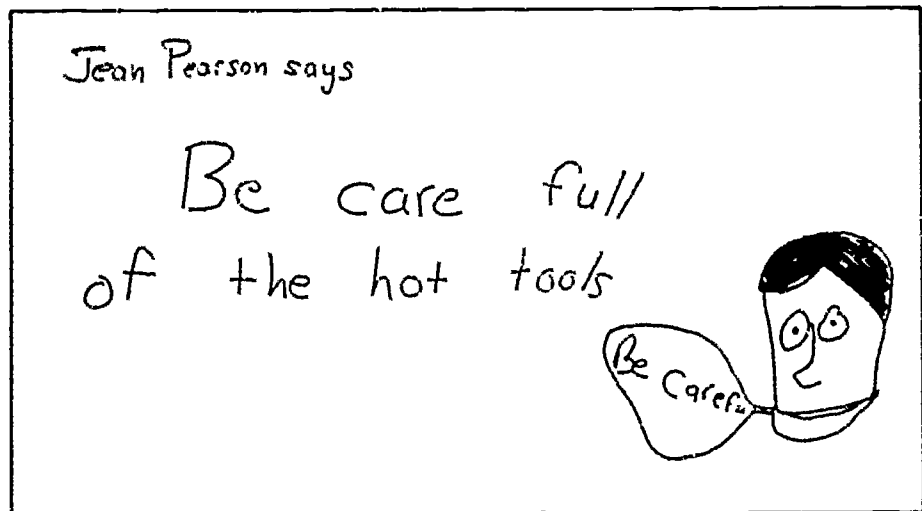 Jean Pearson says
Be care full
of the hot tools
Be
Carefu